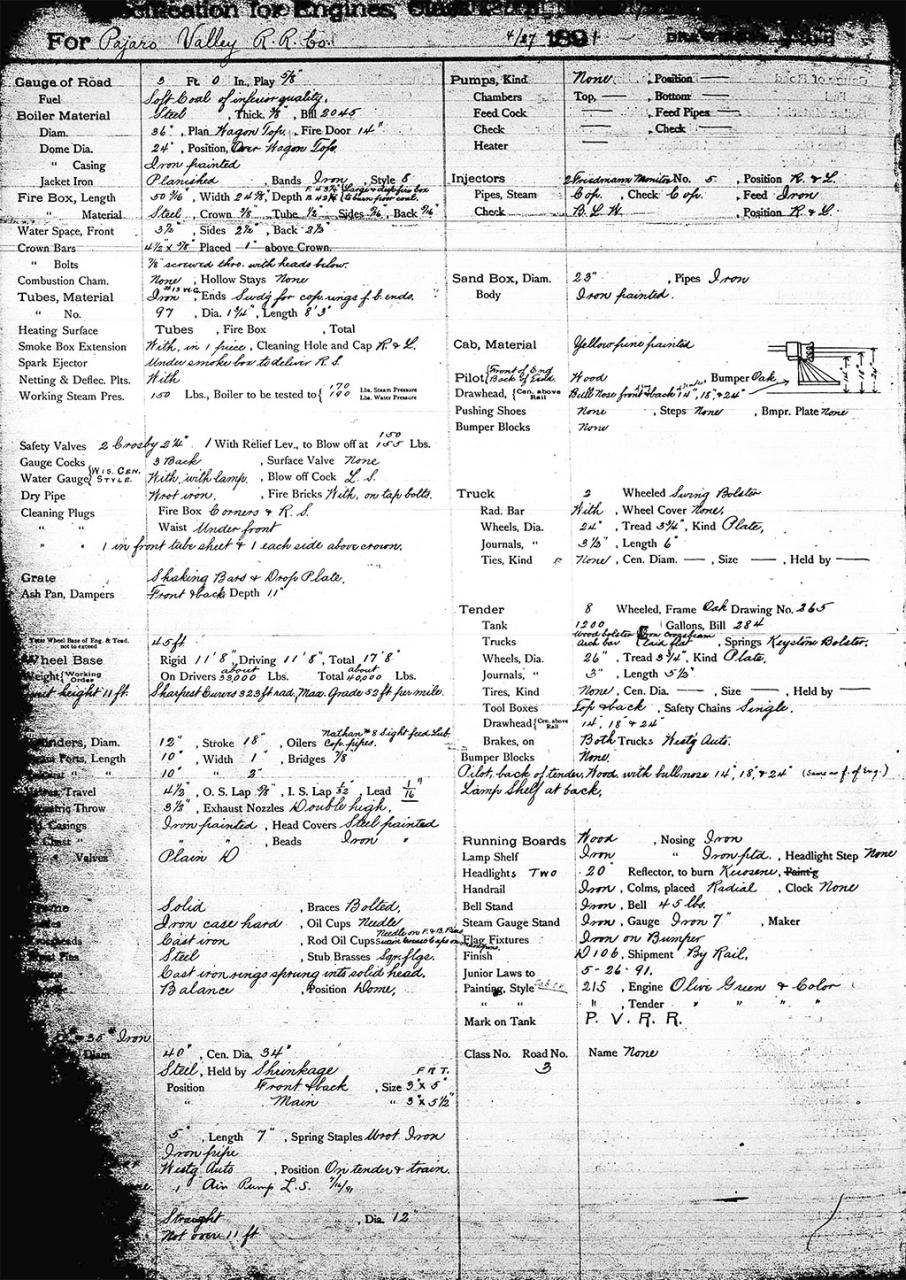 Specification for Engines, Class
For Pajaro Valley R. R. Co. 4/27 1891
Gauge of Road 3 Ft. 0 In., Play 5/8"
Fuel Soft Coal of inferior quality.
Boiler Material Steel , Thick. 3/8" , Bill 2045
Diam. 36" , Plan Wagon Top. , Fire Door 14"
Dome Dia. 24" , Position, Over Wagon Top.
" Casing Iron painted
Jacket Iron Planished , Bands Iron , Style 8
Fire Box, Length 50 3/16 , Width 24 7/8", Depth Large & deep fire box to burn poor coal.
" Material Steel , Crown 3/8 Tube 1/2 Sides 5/16 , Back 5/16"
Water Space, Front 3 1/2" , Sides 2 1/2" , Back 2 1/2"
Crown Bars 4 1/2 x 5/8" Placed 1" above Crown.
" Bolts 7/8" screwed thro. with heads below.
Combustion Cham. None , Hollow Stays None
Tubes, Material Iron #13 W.G. , Ends Swdg for cop. rings f. b. ends.
" No. 97 , Dia. 1 3/4" , Length 8' 3"
Heating Surface Tubes , Fire Box , Total
Smoke Box Extension With, in 1 piece , Cleaning Hole and Cap R. & L.
Spark Ejector Under smoke box to deliver R. S.
Netting & Deflec. Plts. With
Working Steam Pres. 150 Lbs., Boiler to be tested to { 170 Lbs. Steam Pressure 190 Lbs. Water Pressure
Safety Valves 2 Crosby 2 1/4" 1 With Relief Lev., to Blow off at 150 155 Lbs.
Gauge Cocks 3 Back , Surface Valve None
Water Gauge {WIS. CEN. STYLE. With, with lamp. , Blow off Cock L. S.
Dry Pipe Wrot iron. , Fire Bricks With, on tap bolts.
Cleaning Plugs Fire Box Corners & R. S.
" " Waist Under front
" " 1 in front tube sheet & 1 each side above crown.
Grate Shaking Bars & Drop Plate.
Ash Pan, Dampers Front & back Depth 11"
Total Wheel Base of Eng. & Tend. not to exceed 45 ft.
Wheel Base Rigid 11' 8", Driving 11' 8", Total 17' 8"
Weight {Working Order On Drivers about 33,000 Lbs. Total about 40,000 Lbs.
height 11 ft. Sharpest Curves 323 ft rad, Max. Grade 52 ft per mile.
Cylinders, Diam. 12" , Stroke 18" , Oilers Nathan #8 Sight feed Lub. Cop. pipes.
Steam Ports, Length 10" , Width 1" , Bridges 7/8
" " 10" " 2"
Travel 4 1/2 , O. S. Lap 5/8" , I. S. Lap 1/32" , Lead 1/16"
Eccentric Throw 3 1/2" , Exhaust Nozzles Double high.
Casings Iron painted , Head Covers Steel painted
Chest " " " , Beads Iron "
Valves Plain D
Frame Solid , Braces Bolted,
Iron case hard , Oil Cups Needle
Cast iron , Rod Oil Cups Needle on F. & B. Pins
Steel , Stub Brasses Sqr. flgs.
Cast iron rings sprung into solid head.
Balance , Position Dome,
Iron
Diam. 40" , Cen. Dia. 34"
Steel, Held by Shrinkage F. R. T.
Position Front & back , Size 3" x 5"
" Main " 3" x 5 1/2"
5" , Length 7" , Spring Staples Wrot Iron
Iron pipe
Westg Auto , Position On tender & train.
1 Air Pump L. S. 7/16/91
Straight , Dia. 12"
Not over 11 ft
Pumps, Kind None , Position —
Chambers Top, — , Bottom —
Feed Cock — , Feed Pipes —
Check — , Check —
Heater —
Injectors 2 Friedmann Monitor No. 5 , Position R. & L.
Pipes, Steam Cop. , Check Cop. , Feed Iron
Check B. L. W. , Position R. & L.
Sand Box, Diam. 23" , Pipes Iron
Body Iron painted.
Cab, Material Yellow pine painted
Pilot {Front of Eng Back of Tend. Wood , Bumper Oak
Drawhead, {Cen. above Rail Bull nose front & back 14", 18", & 24"
Pushing Shoes None , Steps None , Bmpr. Plate None
Bumper Blocks None
Truck 2 Wheeled Swing Bolster
Rad. Bar With , Wheel Cover None,
Wheels, Dia. 24" , Tread 3 3/4", Kind Plate,
Journals, " 3 1/2" , Length 6"
Ties, Kind None , Cen. Diam. — , Size — , Held by —
Tender 8 Wheeled, Frame Oak Drawing No. 265
Tank 1200 Gallons, Bill 284
Trucks Wood bolster Iron crossbeam Arch bar Laid flat , Springs Keystone Bolster.
Wheels, Dia. 26" , Tread 3 1/4", Kind Plate.
Journals, " 3" , Length 5 1/2"
Tires, Kind None , Cen. Dia. — , Size — , Held by —
Tool Boxes Top & back , Safety Chains Single.
Drawhead {Cen. above Rail 14", 18" & 24"
Brakes, on Both Trucks Westg Auto.
Bumper Blocks None.
Pilot, back of tender, Wood, with bull nose 14", 18" & 24" (Same as f. of Eng.)
Lamp Shelf at back.
Running Boards Wood , Nosing Iron
Lamp Shelf Iron " Iron ptd. , Headlight Step None
Headlights TWO 20" Reflector, to burn Kerosene, Paint'g
Handrail Iron , Colms, placed Radial , Clock None
Bell Stand Iron , Bell 45 lbs.
Steam Gauge Stand Iron , Gauge Iron 7" , Maker
Flag Fixtures Iron on Bumper
Finish D 106 , Shipment By Rail,
Junior Laws to 5-26-91.
Painting, Style 215 , Engine Olive Green & Color
" " " , Tender " " " "
Mark on Tank P. V. R. R.
Class No. Road No. Name None
3